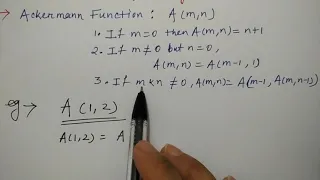 → Ackermann Function : A(m,n)
1. If m=0 then A(m,n) = n+1
2. If m≠0 but n=0,
A(m,n) = A(m-1, 1)
3. If m×n ≠0, A(m,n)= A(m-1, A(m,n-1))
eg → A(1,2)
A(1,2) = A